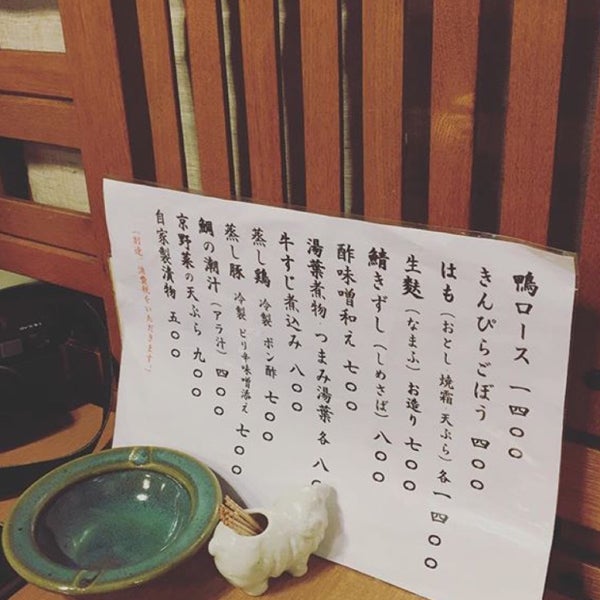 鴨ロース 一四〇〇
きんぴらごぼう 四〇〇
はも(おとし 焼霜 天ぷら)各一四〇〇
生麩(なまふ)お造り 七〇〇
鯖きずし(しめさば) 八〇〇
酢味噌和え 七〇〇
湯葉煮物 つまみ湯葉 各 八〇
牛すじ煮込み 八〇〇
蒸し鶏 冷製 ポン酢 七〇〇
蒸し豚 冷製 ピリ辛味噌添え 七〇〇
鯛の潮汁(アラ汁) 四〇〇
京野菜の天ぷら 九〇〇
自家製漬物 五〇〇
(別途、消費税をいただきます。)